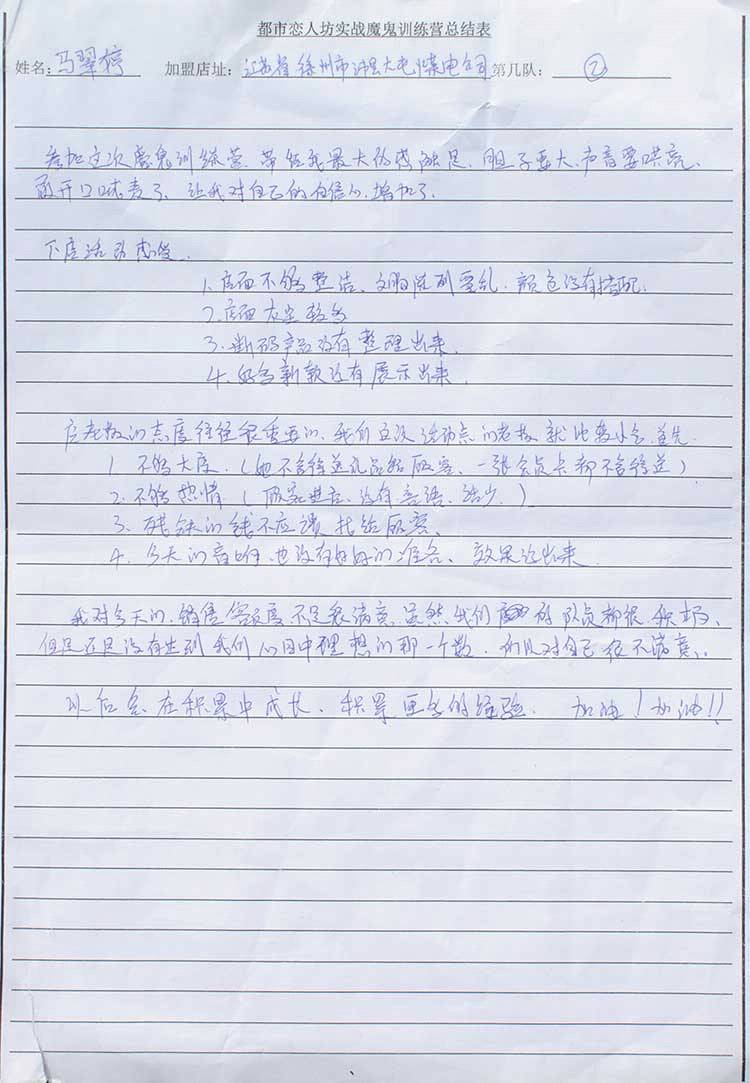 都市恋人坊实战魔鬼训练营总结表
姓名：马翠婷 加盟店址：江苏省徐州市沛县大屯煤电公司 第几队：②
参加这次魔鬼训练营，带给我最大的感触是，胆子要大、声音要哄亮、
敢开口喊麦了，让我对自己的自信心，增加了。
下店活动感受，
1、店面不够整洁、文胸陈列零乱、颜色没有搭配、
2、店面灰尘较多
3、断码产品没有整理出来、
4、好多新款没有展示出来、
店老板的态度往往很重要的、我们这次活动点的老板就比较小气，首先，
1、不够大度、（她不舍得送礼品给顾客、一张会员卡都不舍得送）
2、不够热情（顾客进店、没有言语、话少、）
3、残缺的钱不应该找给顾客、
4、今天的音响、也没有好好的准备、效果没出来
我对今天的、销售额度不是很满意、虽然我们 的队员都很积极、
但是还是没有达到我们心目中理想的那一个数、所以对自己很不满意、
以后会在积累中成长、积累更多的经验、加油！加油！！